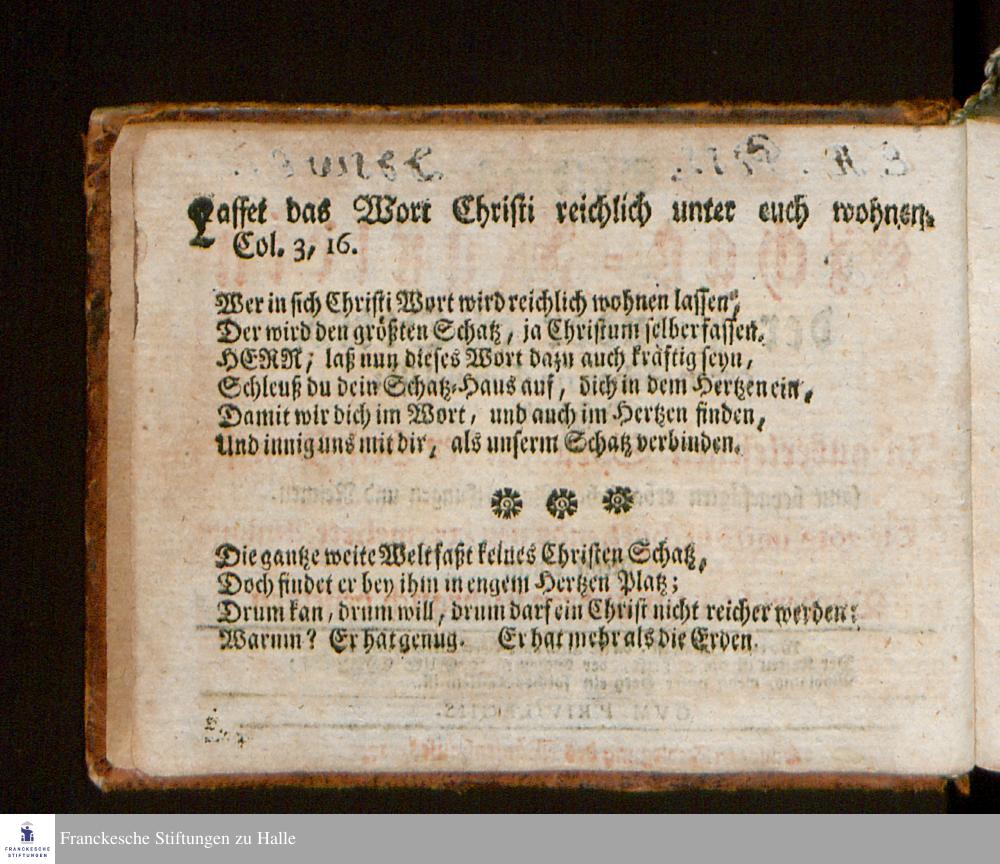 Lasset das Wort Christi reichlich unter euch wohnen.
Col. 3, 16.
Wer in sich Christi Wort wird reichlich wohnen lassen,
Der wird den größten Schatz, ja Christum selber fassen.
HERR, laß nun dieses Wort dazu auch kräftig seyn,
Schleuß du dein Schatz-Haus auf, dich in dem Hertzen ein,
Damit wir dich im Wort, und auch im Hertzen finden,
Und innig uns mit dir, als unserm Schatz verbinden.
Die gantze weite Welt faßt keines Christen Schatz,
Doch findet er bey ihm in engem Hertzen Platz;
Drum kan, drum will, drum darf ein Christ nicht reicher werden:
Warum? Er hat genug. Er hat mehr als die Erden.
Franckesche Stiftungen zu Halle
FRANCKESCHE
STIFTUNGEN